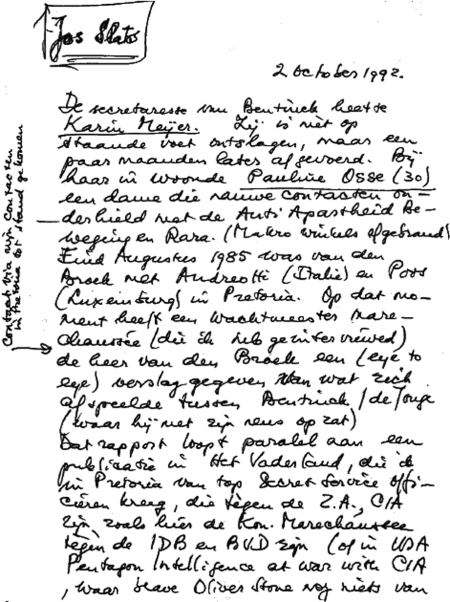 Jos Slats
2 October 1992.
De secretaresse van Bentinck heette
Karin Meijer. Zij is niet op
staande voet ontslagen, maar een
paar maanden later afgevoerd. Bij
haar in woonde Pauline Osse (30)
een dame die nauwe contacten on-
derhield met de Anti Apastheid Be-
weging en Rara. (Makro winkels afgebrand)
Eind Augustus 1985 was van den
Broek met Andreotti (Italië) en Poos
(Luxemburg) in Pretoria. Op dat mo-
ment heeft een wachtmeester mare-
chaussée (die ik heb geinterviewed)
de heer van den Broek een (eye to
eye) verslag gegeven van wat zich
afspeelde tussen Bentinck / de Jonge
(waar hij met zijn neus op zat)
Dat rapport loopt paralel aan een
publicatie in Het Vaderland, die ik
in Pretoria van top Secret Service offi-
cieren kreeg, die tegen de Z.A., CIA
zijn, zoals hier de Kon. Marechaussee
tegen de IDB en BVD zijn (of in USA
Pentagon Intelligence at war with CIA
, waar brave Oliver Stone nog niets van
Contact via mijn contacten
in Pretoria tot stand gekomen